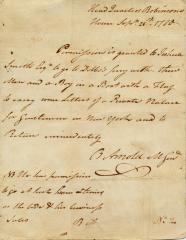 Head Quarters Robinson's
House Sepr. 22d. 1780
Permission is granted to Joshua
Smith Esqr. to go to Dobbs's ferry with three
Men and a Boy in a Boat with a Flag
to carry some Letters of a Private Nature
for Gentlemen in New York and to
Return immediately
B. Arnold M Genl
NB He has permission
to go at such hours & times
as the tide & his business
Suits B A